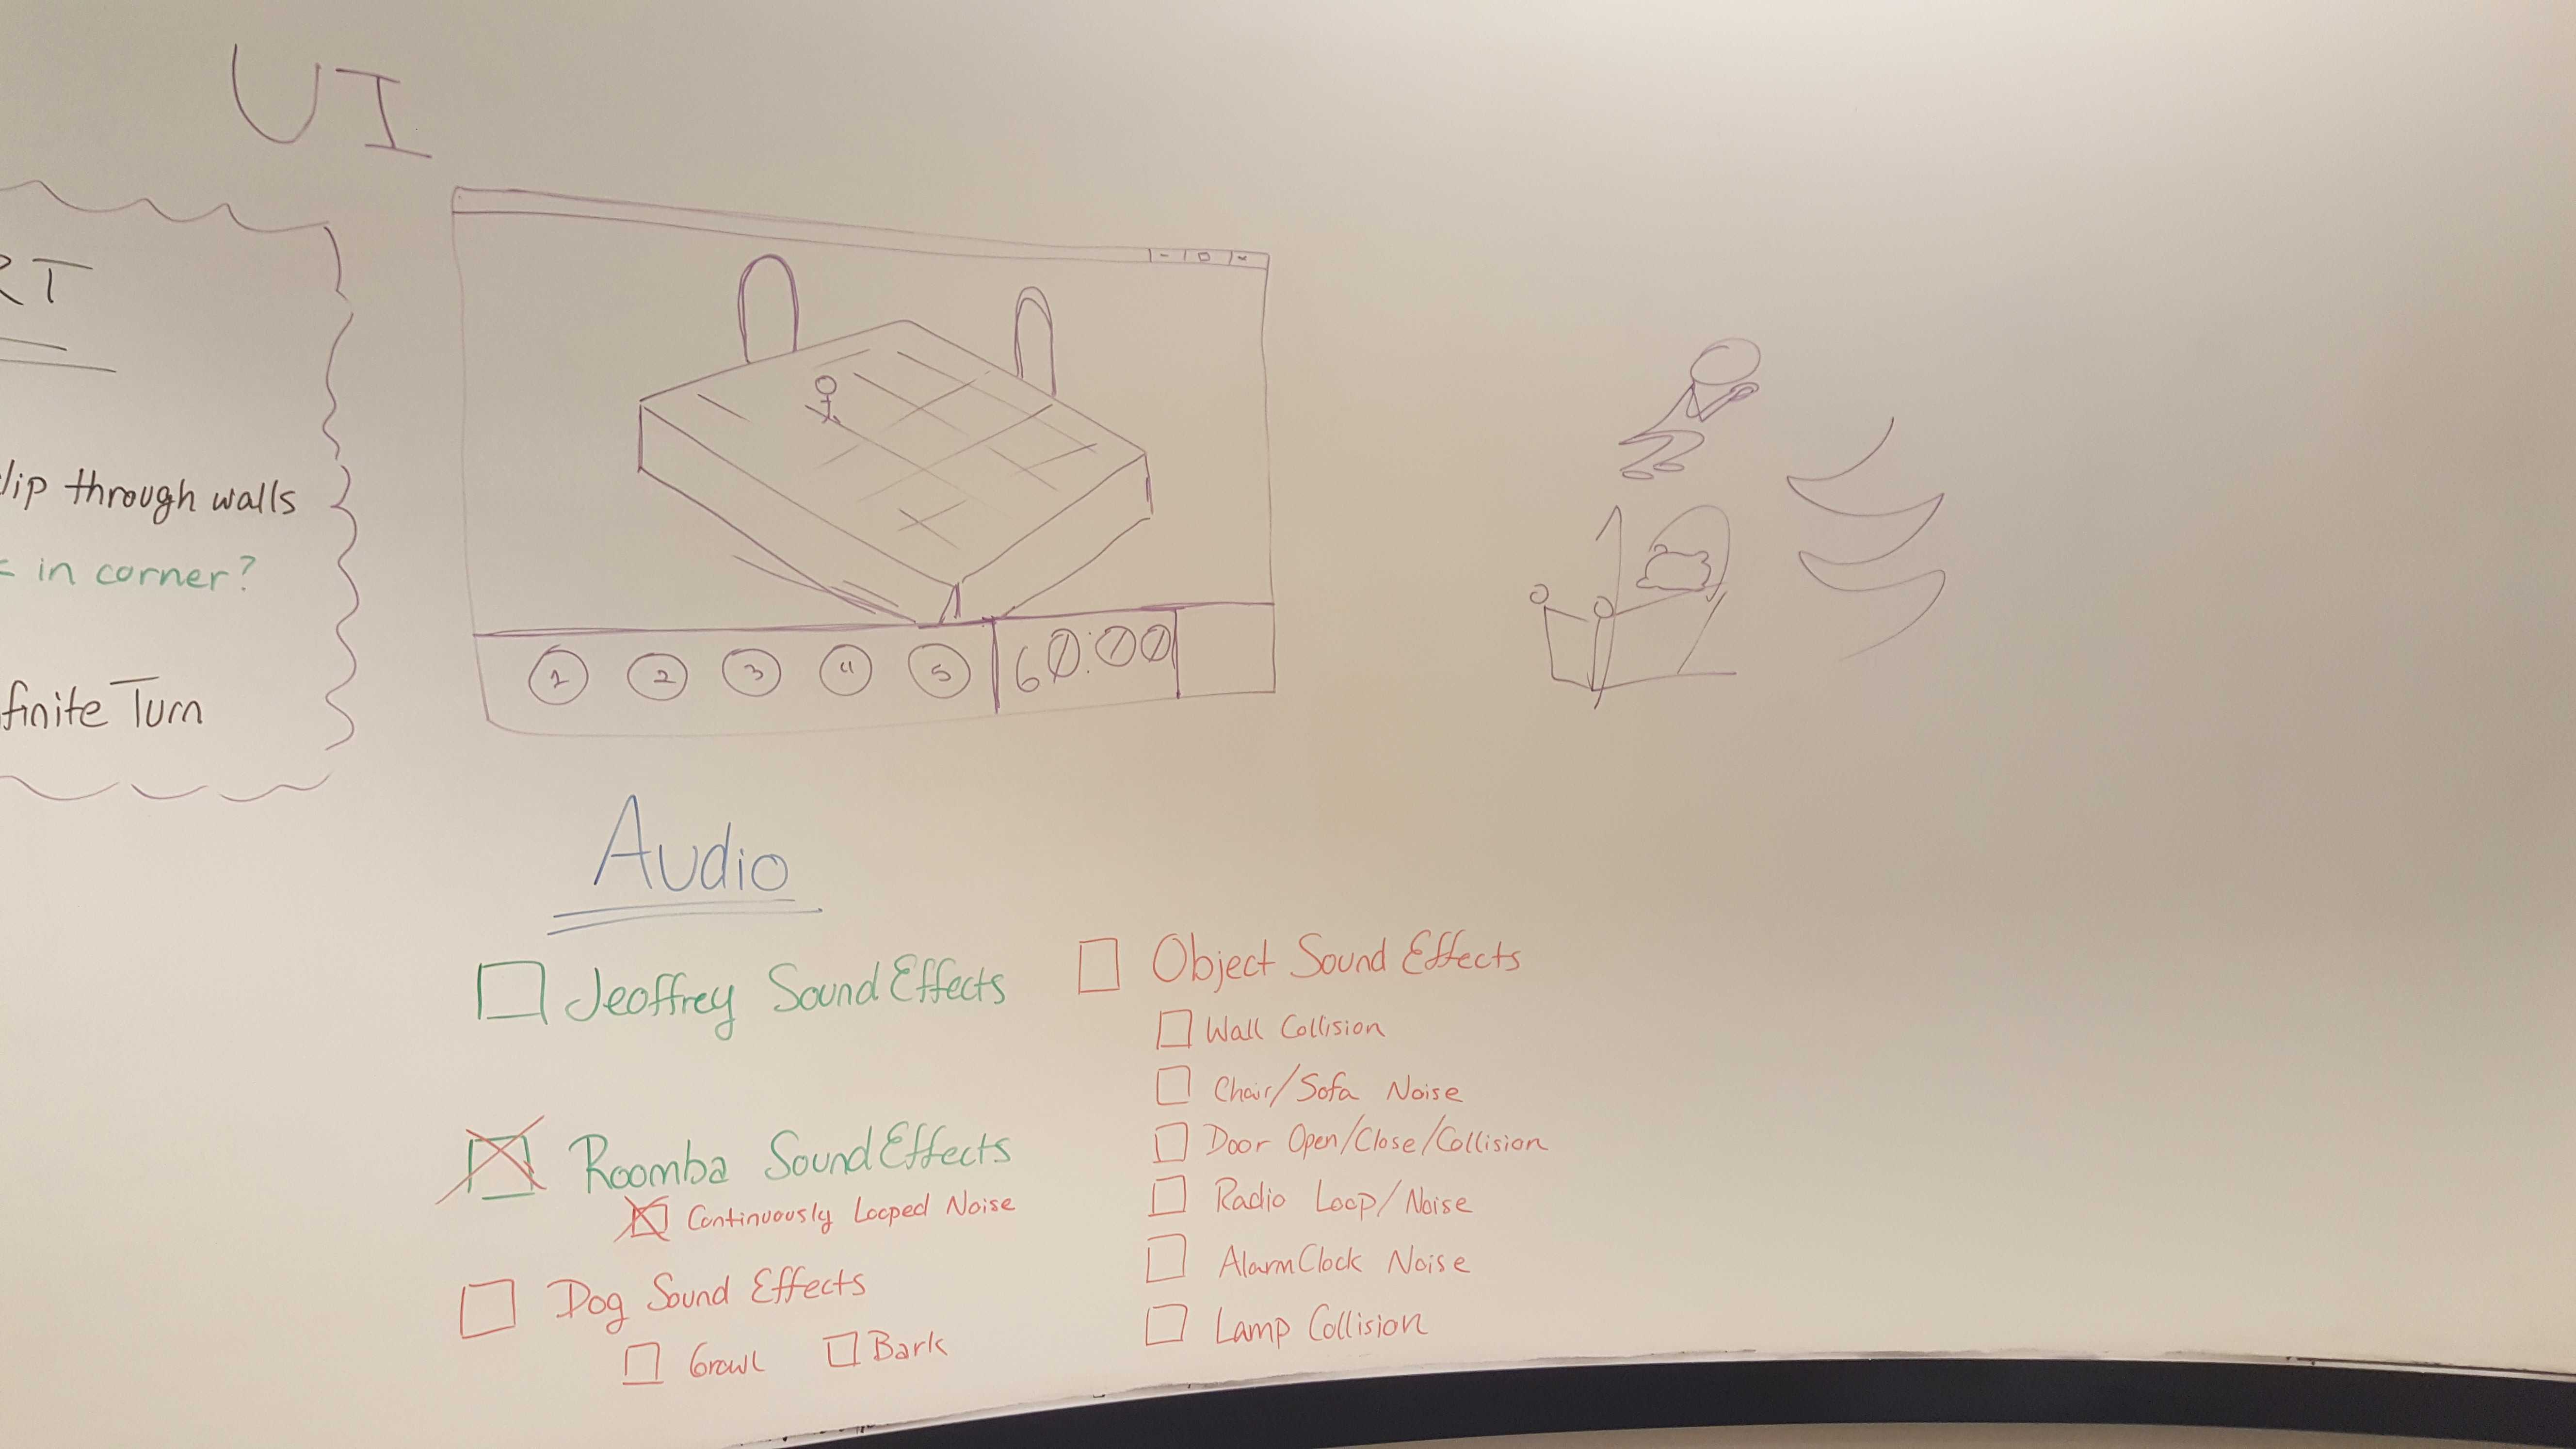 UI
RT
lip through walls
in corner?
finite Turn
- □ ×
1 2 3 4 5 60:00
Audio
Jeoffrey Sound Effects
Roomba Sound Effects
Continuously Looped Noise
Dog Sound Effects
Growl Bark
Object Sound Effects
Wall Collision
Chair/Sofa Noise
Door Open/Close/Collision
Radio Loop/Noise
AlarmClock Noise
Lamp Collision